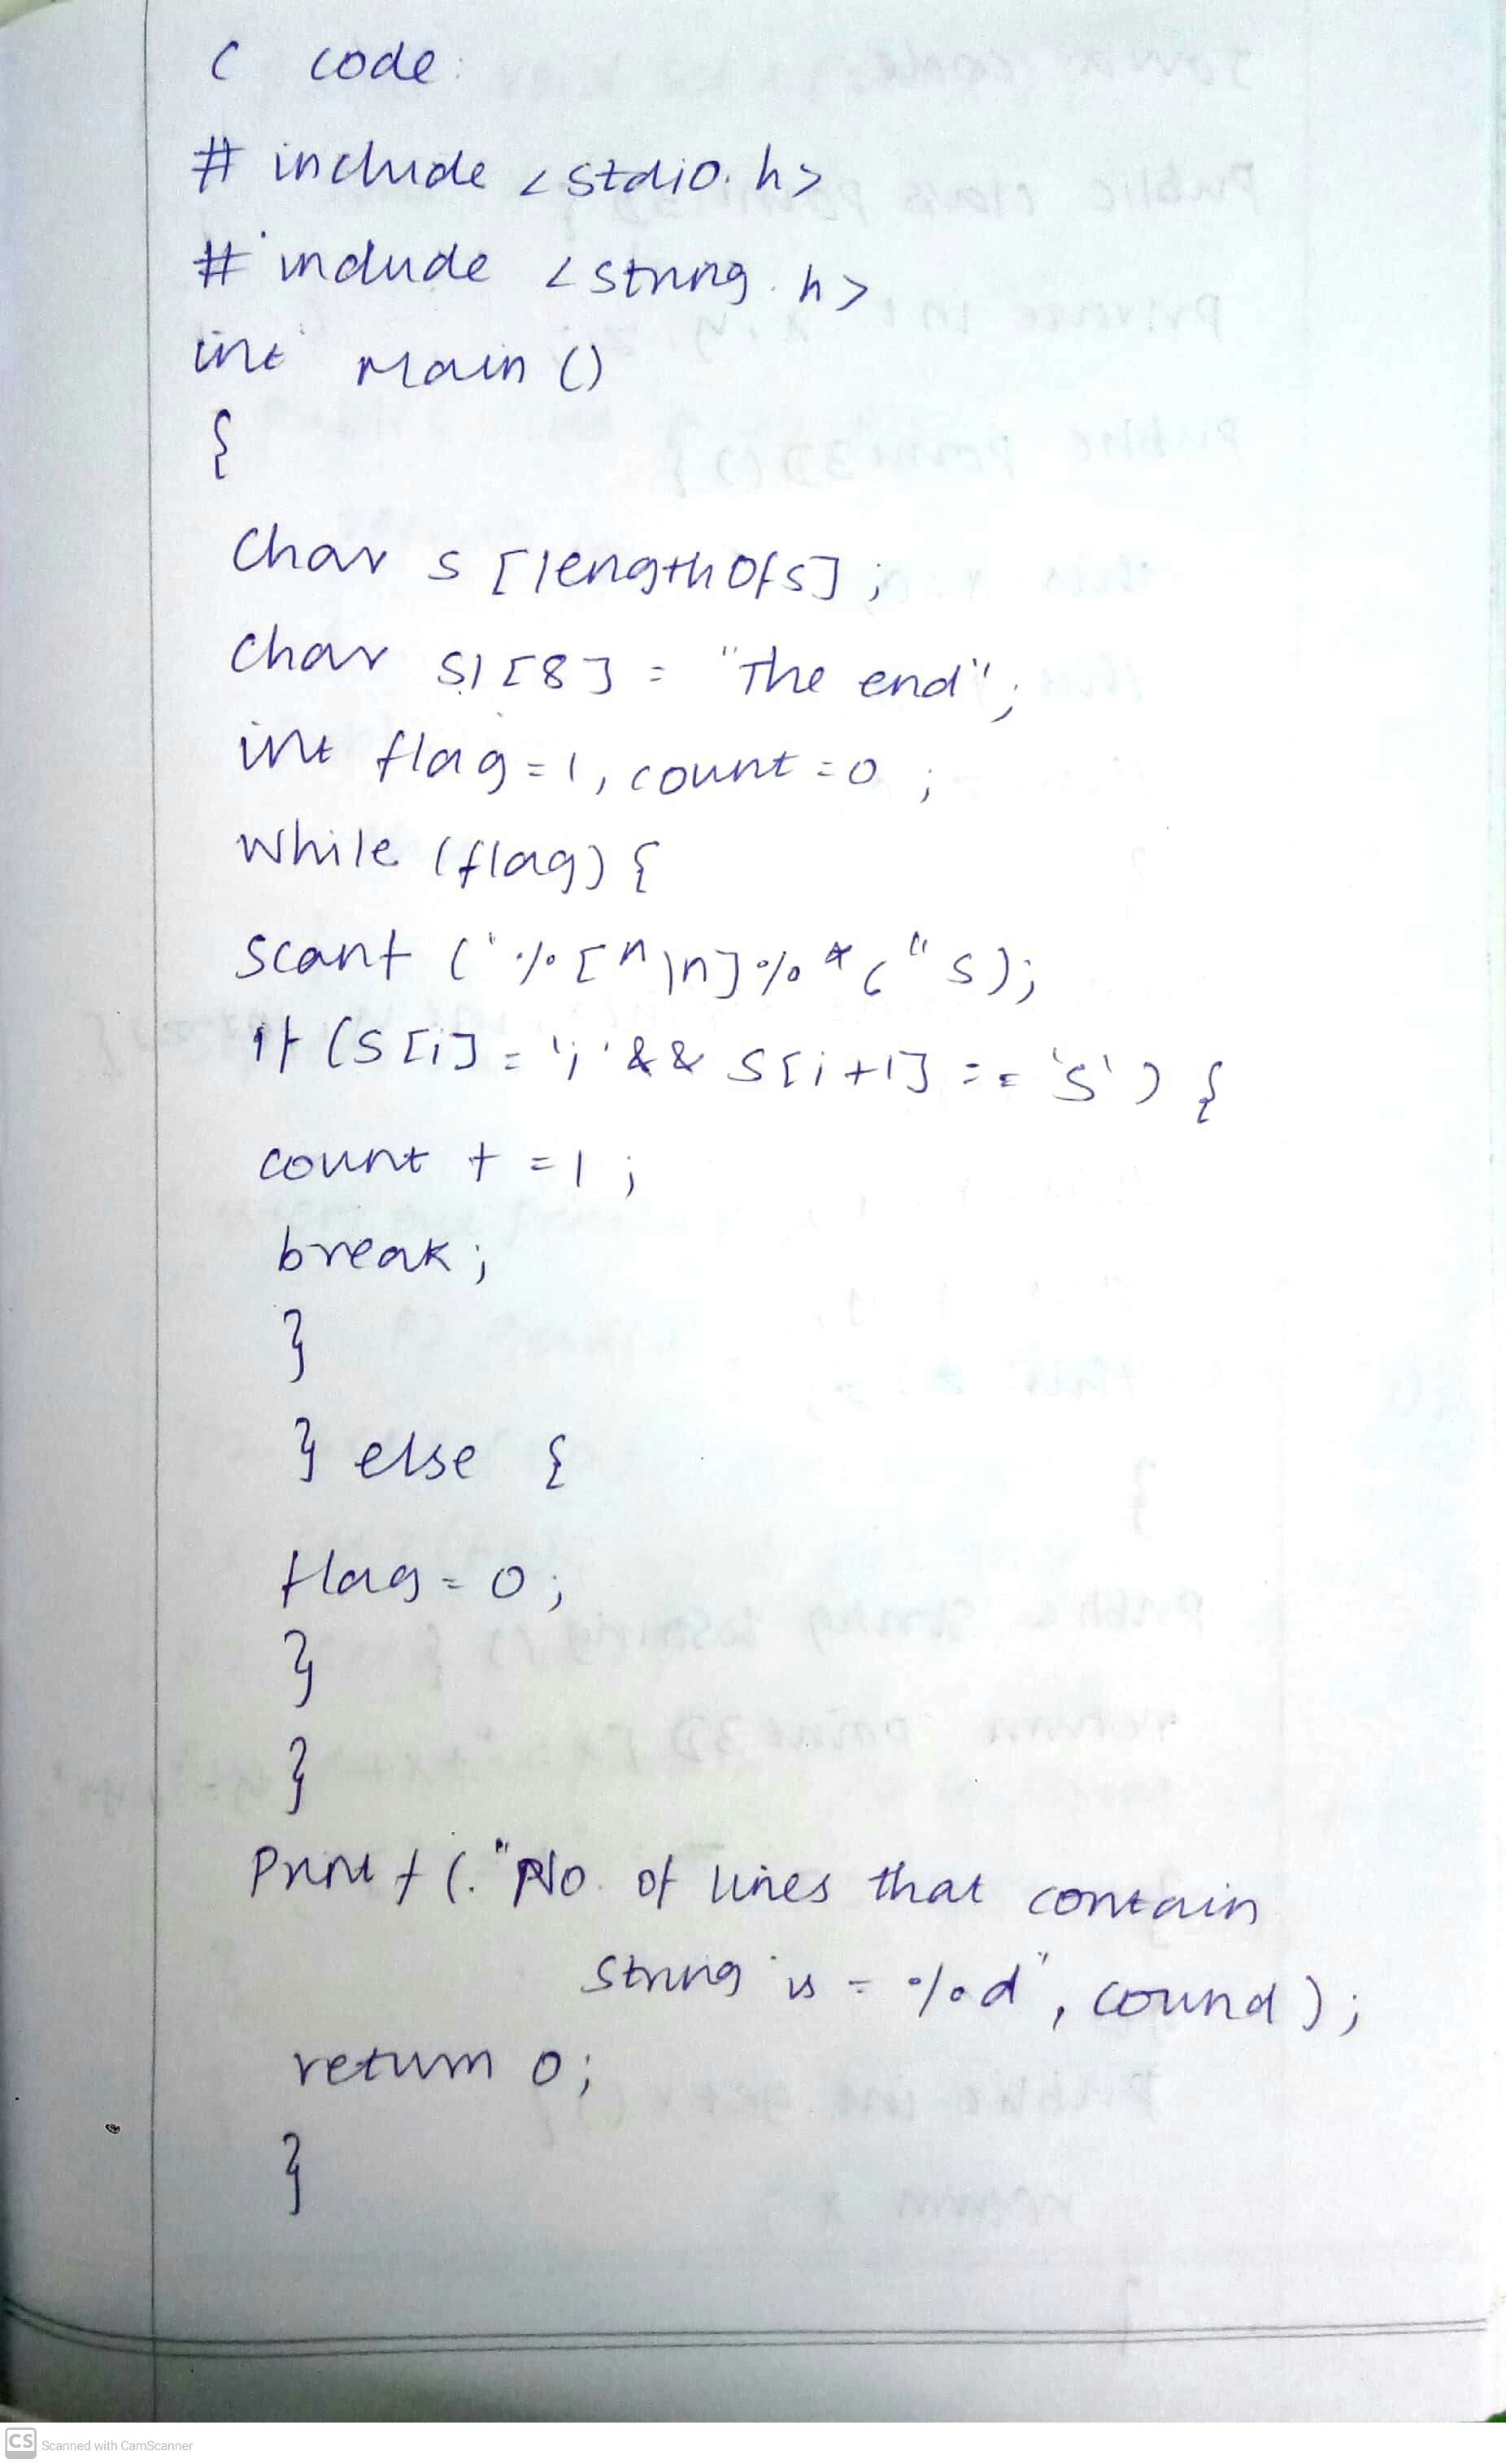 C code:
# include <stdio.h>
# include <string.h>
int Main ()
{
char s [lengthOfs];
char s1 [8] = "The end";
int flag = 1, count = 0;
while (flag) {
scanf ("%[^\n]%*c" s);
if (s[i] = 'i' && s[i+1] == 's') {
count + = 1;
break;
}
} else {
flag = 0;
}
}
Printf (."No. of lines that contain
string is = %d", cound);
return 0;
}
CS Scanned with CamScanner